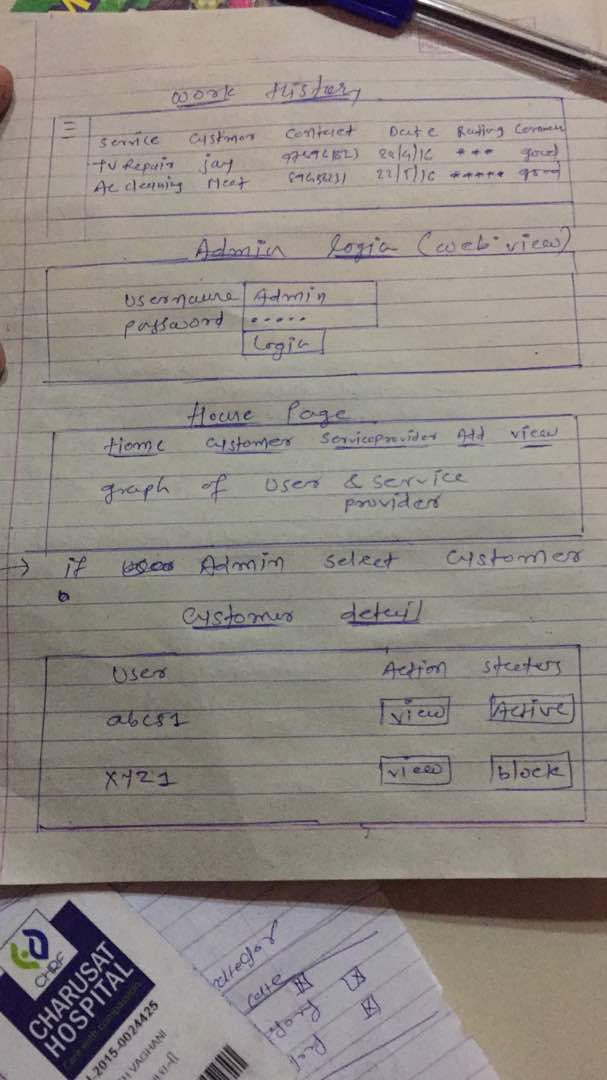 Work History
Service Customer Contact Date Rating Commen
TV Repair Jay 22/4/16 *** good
Ac cleaning Meet 22/5/16 ***** good
Admin Login (web view)
Username Admin
password .....
Login
Home Page
Home Customer Serviceprovider Add view
graph of user & service
provider
→ if Admin select customer
Customer detail
User Action States
abcs1 view Active
xyz1 view block
CHRF
CHARUSAT
HOSPITAL
Care with compassion
-2015-0024425
H VAGHANI